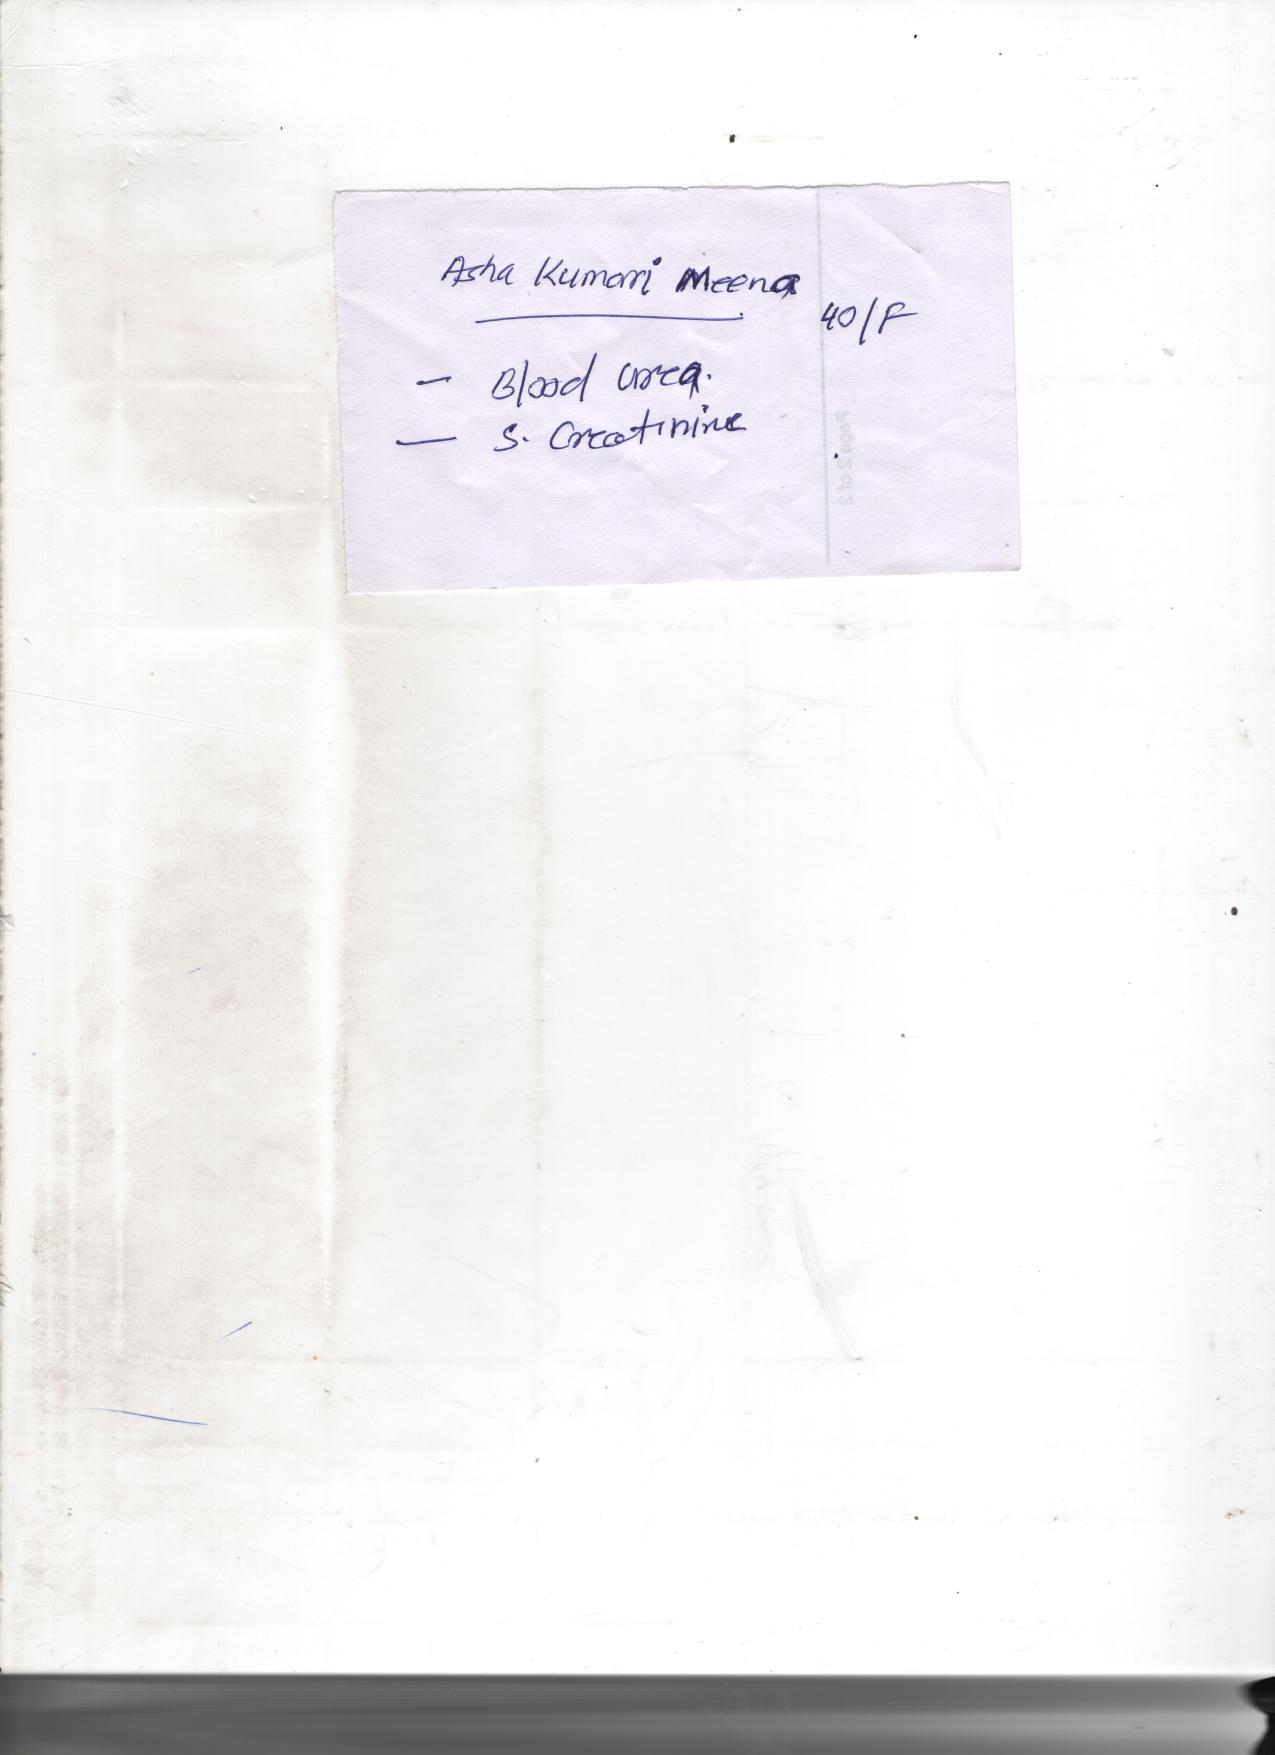 Asha Kumari Meena
40/F
- Blood Urea.
- S. Creatinine
Page 2 of 2